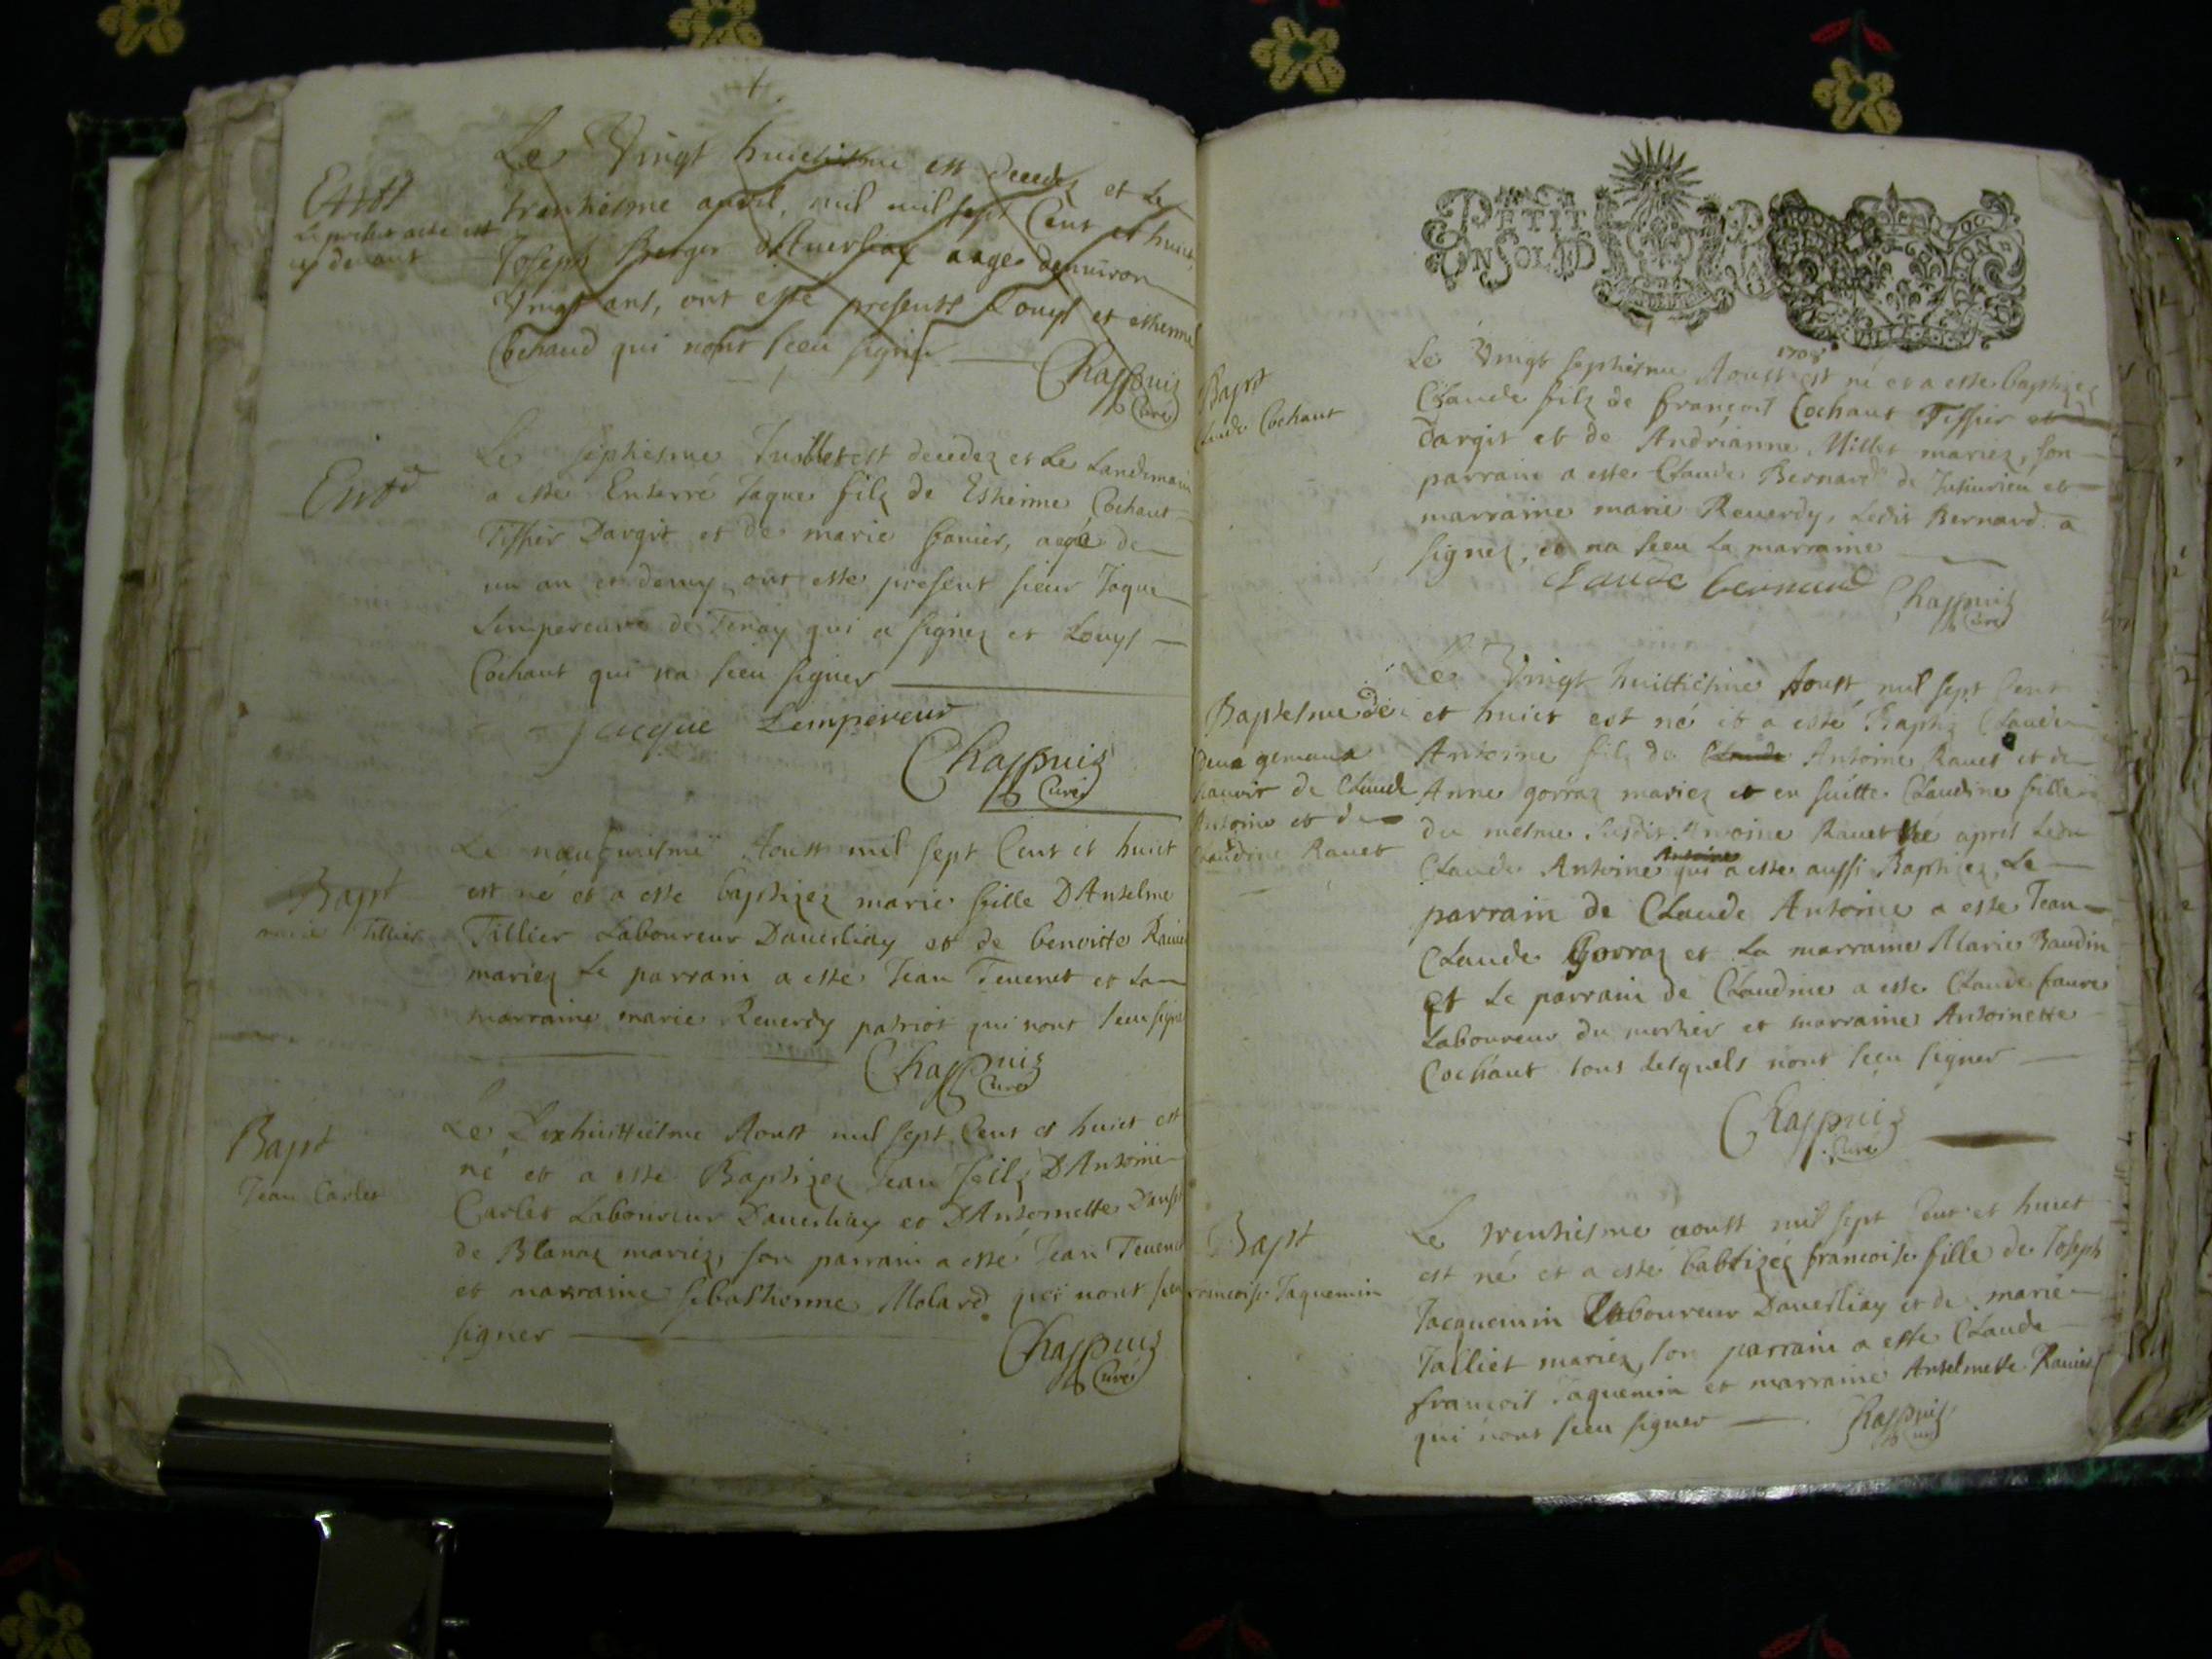 Entt
le present acte est
cy devant
Le Vingt huictiesme est decedez et Le
trentiesme apvril, mil mil sept Cent et huict,
Joseph Berger dAuerliay aage denuiron
Vingt ans, ont esté presents Louys et estienne
Cochaud qui nont sceu signer
Chappuiz
Curé
Le septiesme Juillet est decedez et Le Landemain
a esté Enterré Jaque filz de Estienne Cochaut
Tissier Dargit et de marie, aagé de
un an et demy, ont esté present sieur Jaque
Lempereur de Tenay qui a signez et Louys
Cochaut qui na sceu signer
Jacque Lempereur
Chappuiz
Curé
Bapt
marie Tillier
Le neufuiesme Aoust mil sept Cent et huict
est né et a esté baptizez marie fille DAnselme
Tillier Laboureur Dauerliay et de benoitte
mariez Le parrain a esté Jean Teuenet et La
marraine marie Reuerdy patriot qui nont sceu signer
Chappuiz
Curé
Bapt
Jean Carlet
Le Dixhuittiesme Aoust mil sept Cent et huict est
né et a esté Baptizez Jean filz DAntoine
Carlet Laboureur Dauerliay et DAntoinette
de Blanaz mariez, son parrain a esté Jean Teuenet
et marraine sebastienne Molard qui nont sceu
signer
Chappuiz
Curé
PETIT P
UN SOL LD
Bapt
Claude Cochaut
1708
Le Vingt septiesme Aoust est né et a esté baptizez
Claude filz de françois Cochaut Tissier
dargit et de Andrianne Millet mariez, son
parrain a esté Claude Bernard de Jujurieu et
marraine marie Reuerdy, Ledit Bernard a
signez, et na sceu La marraine
claude bernard
Chappuiz
Curé
Baptesme de
deux gemeaux
scauoir de Claude
Antoine et de
Claudine Rauet
Le Vingt huittiesme Aoust mil sept Cent
et huict est né et a esté Baptiz Claude
Antoine filz de Claude Antoine Rauet et de
Anne gorraz mariez et en suitte Claudine fille
du mesme susdit Antoine Rauet né apres Ledit
Claude Antoine qui a esté aussi Baptizez, Le
parrain de Claude Antoine a esté Jean
Claude Gorraz et La marraine Marie Baudin
et Le parrain de Claudine a esté Claude faure
Laboureur du mortier et marraine Antoinette
Cochaut tous lesquels nont sceu signer
Chappuiz
Curé
Bapt
francoise Jaquemin
Le trentiesme aoust mil sept Cent et huict
est né et a esté babtizéz francoise fille de Joseph
Jacquemin Laboureur Dauerliay et de marie
Talliet mariez, son parrain a esté Claude
francois Jaquemin et marraine Anselmette Rauier
qui nont sceu signer
Chappuiz
Curé